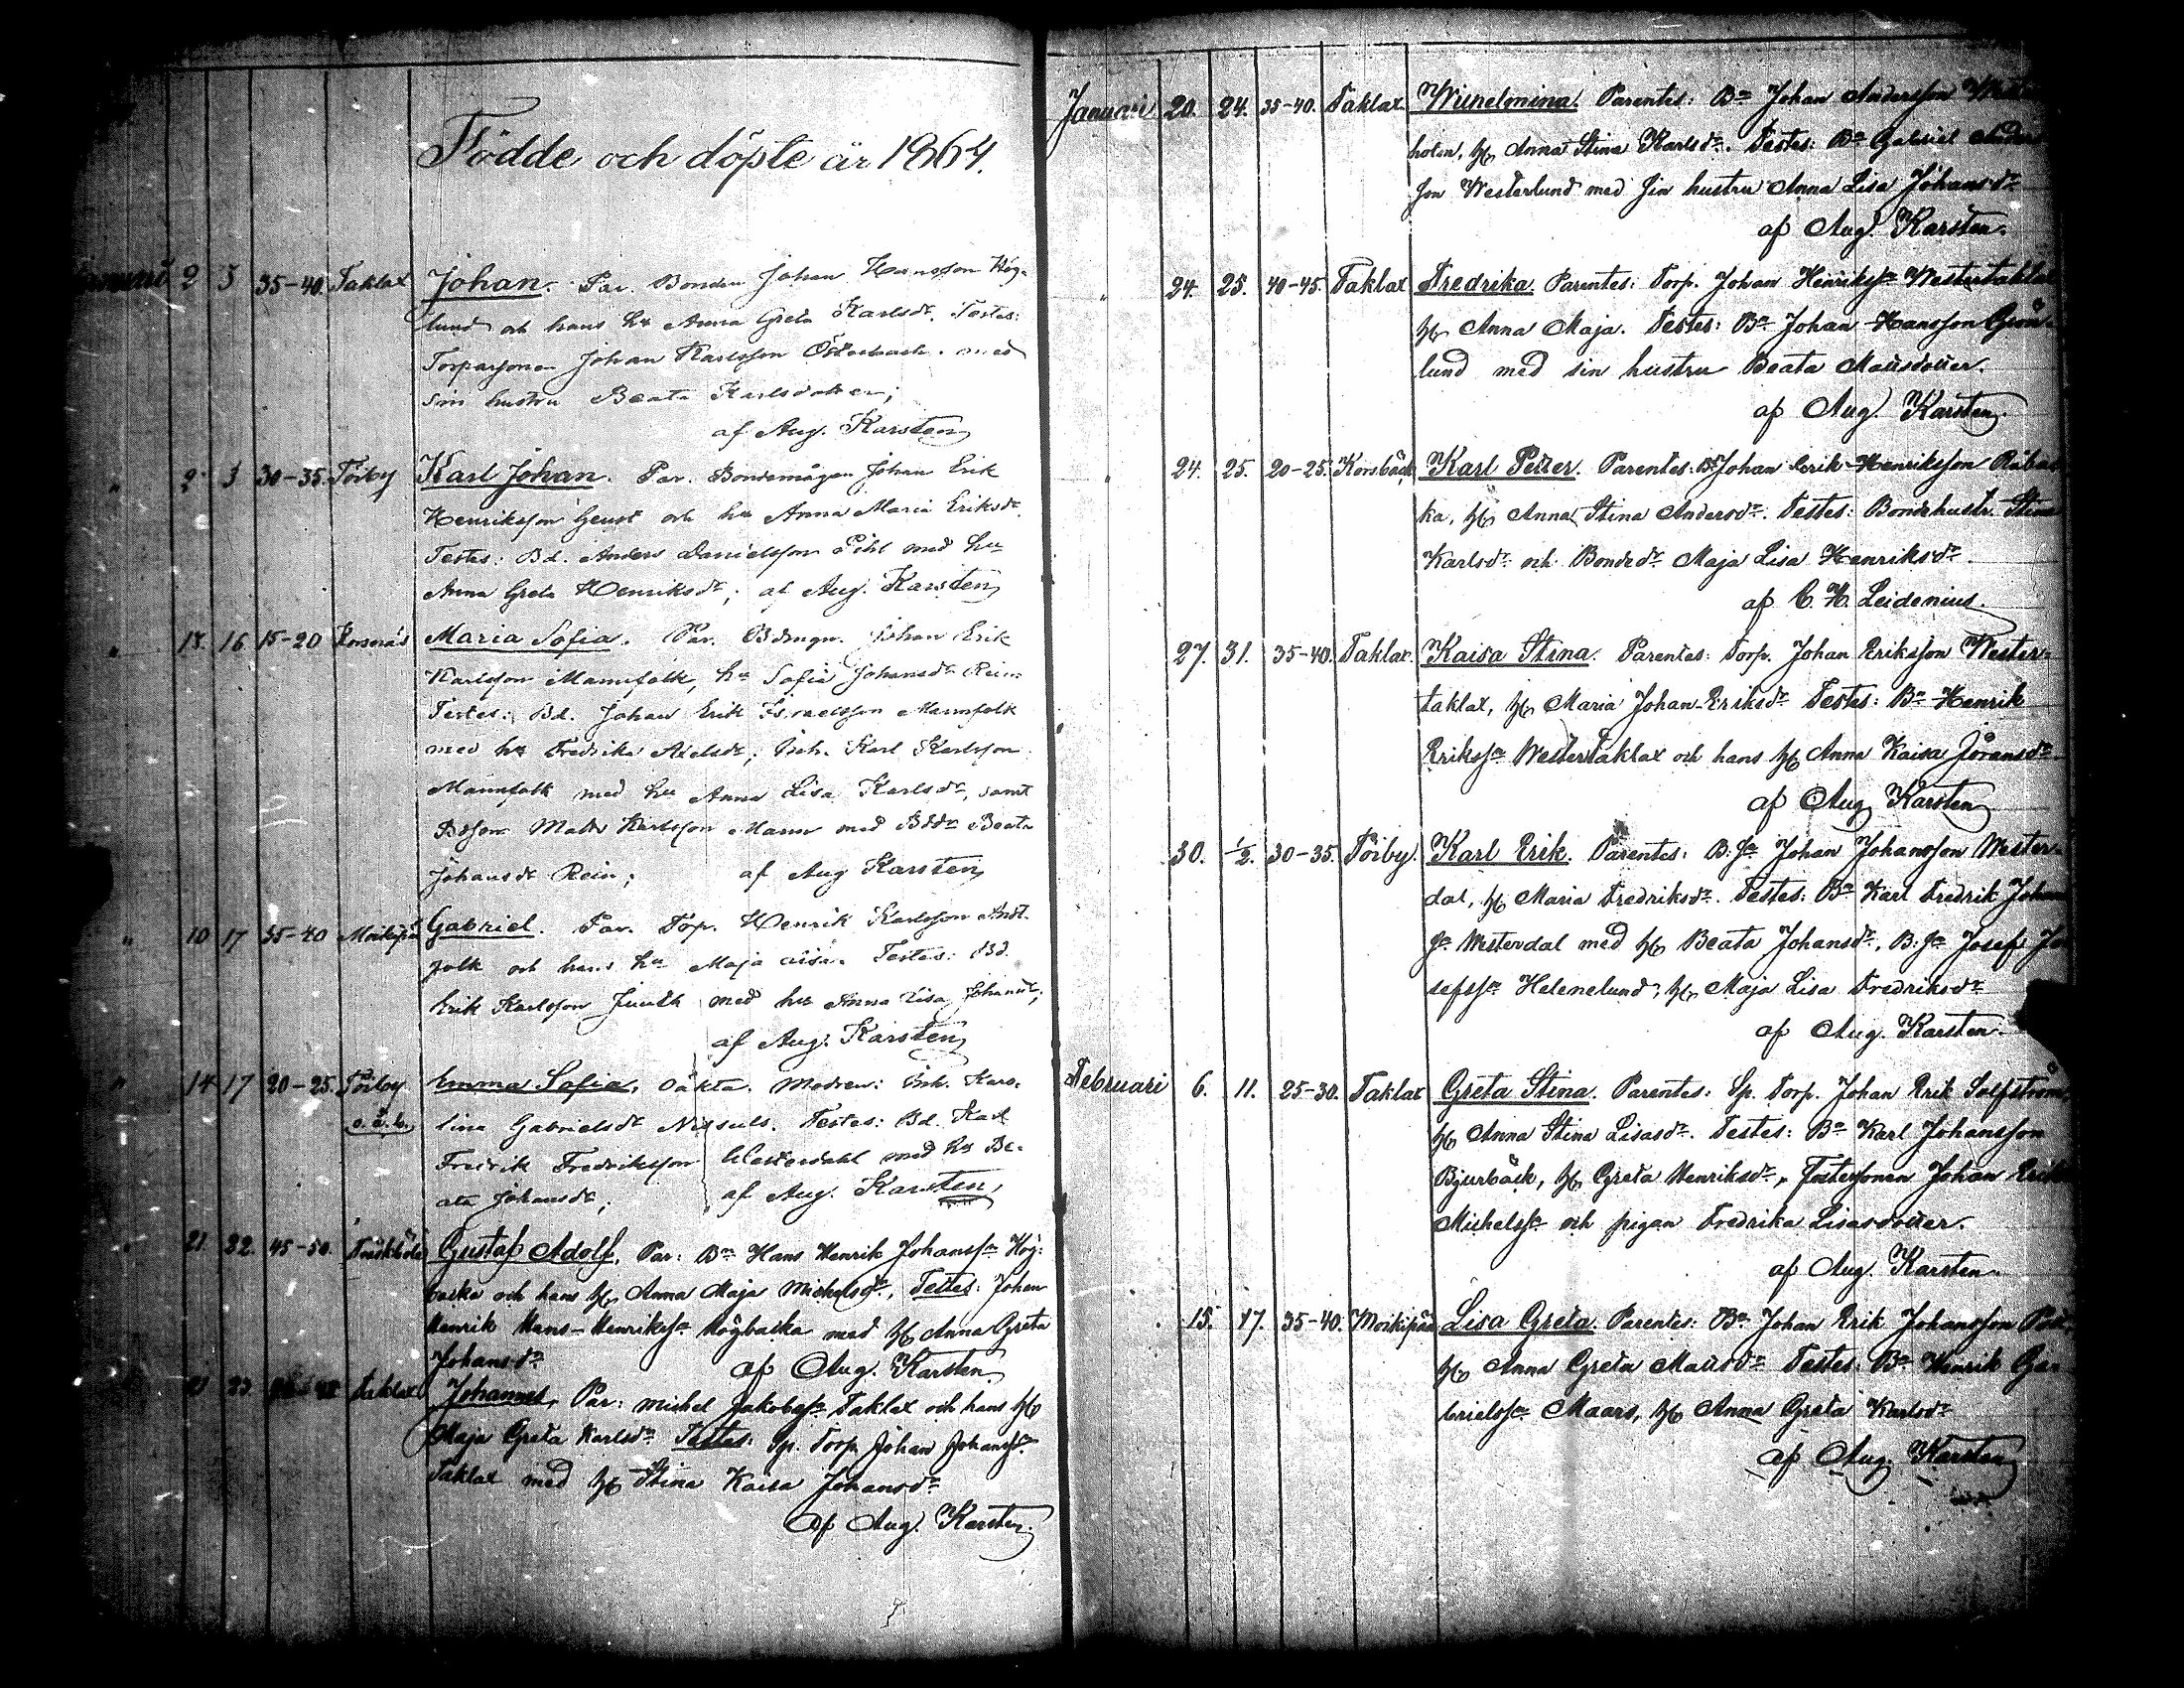 Födde och döpte år 1864.
2 3 35-40. Taklax Johan. Par. Bonden Johan Hansson Hög-
lund och hans hu Anna Greta Karlsdr. Testes:
Torparsonen Johan Karlsson Österback med
sin hustru Beata Karlsdotter;
af Aug. Karsten
" 2 3 30-35. Töiby Karl Johan. Par. Bondemågen Johan Erik
Henriksson Geust och hu Anna Maria Eriksdr.
Testes: Bd. Anders Danielsson Pihl med hu
Anna Greta Henriksdr; af Aug. Karsten
" 16 15-20 Korsnäs Maria Sofia. Par. Bdmgn. Johan Erik
Karlsson Mannfolk, hu Sofia Johansdr Rein.
Testes: Bd. Johan Erik Israelsson Mannfolk
med hu Fredrika Axelsdr; Inh. Karl Karlsson
Mannfolk med hu Anna Lisa Karlsdr, samt
Bdson Matts Karlsson Mann med Bddr Beata
Johansdr Rein; af Aug Karsten
" 10 17 35-40 Moikipä Gabriel. Par. Torp. Henrik Karlsson
folk och hans hu Maja Lisa. Testes: Bd.
Erik Karlsson Juuth med hu Anna Lisa Johansdr;
af Aug. Karsten
" 14 17 20-25. Töiby Emma Sofia, oäkta. Modren: Inh. Karo-
o.ä.b. lina Gabrielsdr Nissuls. Testes: Bd. Karl
Fredrik Fredriksson Westerdahl med hu Be-
ata Johansdr; af Aug. Karsten,
" 21 22. 45-50. Träskböle Gustaf Adolf, Par: Bn Hans Henrik Johanssn Hög-
backa och hans H. Anna Maja Michelsdr, Testes: Johan
Henrik Hans-Henrikssn Högbacka med H. Anna Greta
Johansdr af Aug. Karsten.
21 23 Taklax Johannes, Par: Michel Jakobssn Taklax och hans H.
Maja Greta Karlsdr. Testes: Sp. Torp. Johan Johanssn
Taklax med H. Stina Kaisa Johansdr
af Aug. Karsten.
Januari 20. 24. 35-40. Taklax Wilhelmina. Parentes: Bn Johan Andersson
holm, H. Anna Stina Karlsdr. Testes: Bn Gabriel Anders-
son Westerlund med sin hustru Anna Lisa Johansdr
af Aug. Karsten.
" 24. 25. 40-45. Taklax Fredrika. Parentes: Torp. Johan Henrikssn Westertaklax
H. Anna Maja. Testes: Bn Johan Hansson Grön-
lund med sin hustru Beata Mattsdotter.
af Aug. Karsten
" 24. 25. 20-25. Korsbäck Karl Petter. Parentes: Bn Johan Erik Henriksson Råbac-
ka, H. Anna Stina Andersdr. Testes: Bondehustr. Stina
Karlsdr och Bondedr Maja Lisa Henriksdr.
af C. H. Leidenius.
27. 31. 35-40. Taklax. Kaisa Stina. Parentes: Torp. Johan Eriksson Wester-
taklax, H. Maria Johan-Eriksdr Testes: Bn Henrik
Erikssn Westertaklax och hans H. Anna Kaisa Jöransdr.
af Aug Karsten
30. 1/2. 30-35. Töiby. Karl Erik. Parentes: B. sn Johan Johansson Wester-
dal, H. Maria Fredriksdr. Testes: Bn Karl Fredrik Johans
sn Westerdal med H. Beata Johansdr, B. sn Josef Jo
sefssn Helenelund, H. Maja Lisa Fredriksdr
af Aug. Karsten.
Februari 6. 11. 25-30. Taklax Greta Stina. Parentes: Sp. Torp. Johan Erik Solfström,
H. Anna Stina Lisasdr. Testes: Bn Karl Johansson
Bjurbäck, H. Greta Henriksdr, Fostersonen Johan Erik
Michelssn och pigan Fredrika Lisasdotter.
af Aug. Karsten.
15. 17. 35-40. Moikipää Lisa Greta. Parentes: Bn Johan Erik Johansson
H. Anna Greta Mattsdr Testes: Bn Henrik Ga-
brielssn Maars, H. Anna Greta Karlsdr
af Aug. Karsten